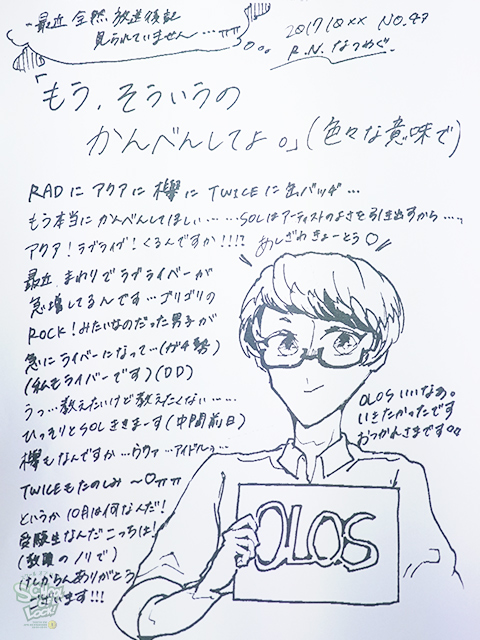 最近 全然 放送後記
見られていません…
2017 10 ×× NO.97
R.N. なつめぐ
「もう、そういうの
かんべんしてよ。」(色々な意味で)
RADに アクアに 欅に TWICEに 缶バッヂ…
もう本当に かんべんしてほしい……SOLはアーティストのよさを引き出すから…、
アクア!ラブライブ!くるんですか!!!? あしざわきょーとう♡
最近 まわりでラブライバーが
急増してるんです…ゴリゴリの
ROCK!みたいなのだった男子が
急にライバーになって…(ガチ勢)
(私もライバーです)(DD)
うっ…教えたいけど教えたくない……
ひっそりとSOLききまーす(中間前日)
欅もなんですか…ウウッ…アイドルぅ…
TWICEも たのしみ〜♡
というか 10月は何なんだ!
受験生なんだこっちは!
(教職のノリで)
けしからんありがとう
ございます!!!
OLOS いいなあ。
いきたかったです
おつかれさまです
OLOS
SCHOOL
OF LOCK!